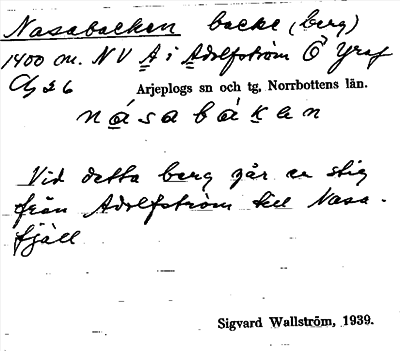 Nasabacken backe (berg)
1400 m. N V A i Adolfström Ö Yraf
Arjeplogs sn och tg, Norrbottens län.
násabákan
Vid detta berg går en stig
från Adolfström till Nasa-
fjäll
Sigvard Wallström, 1939.